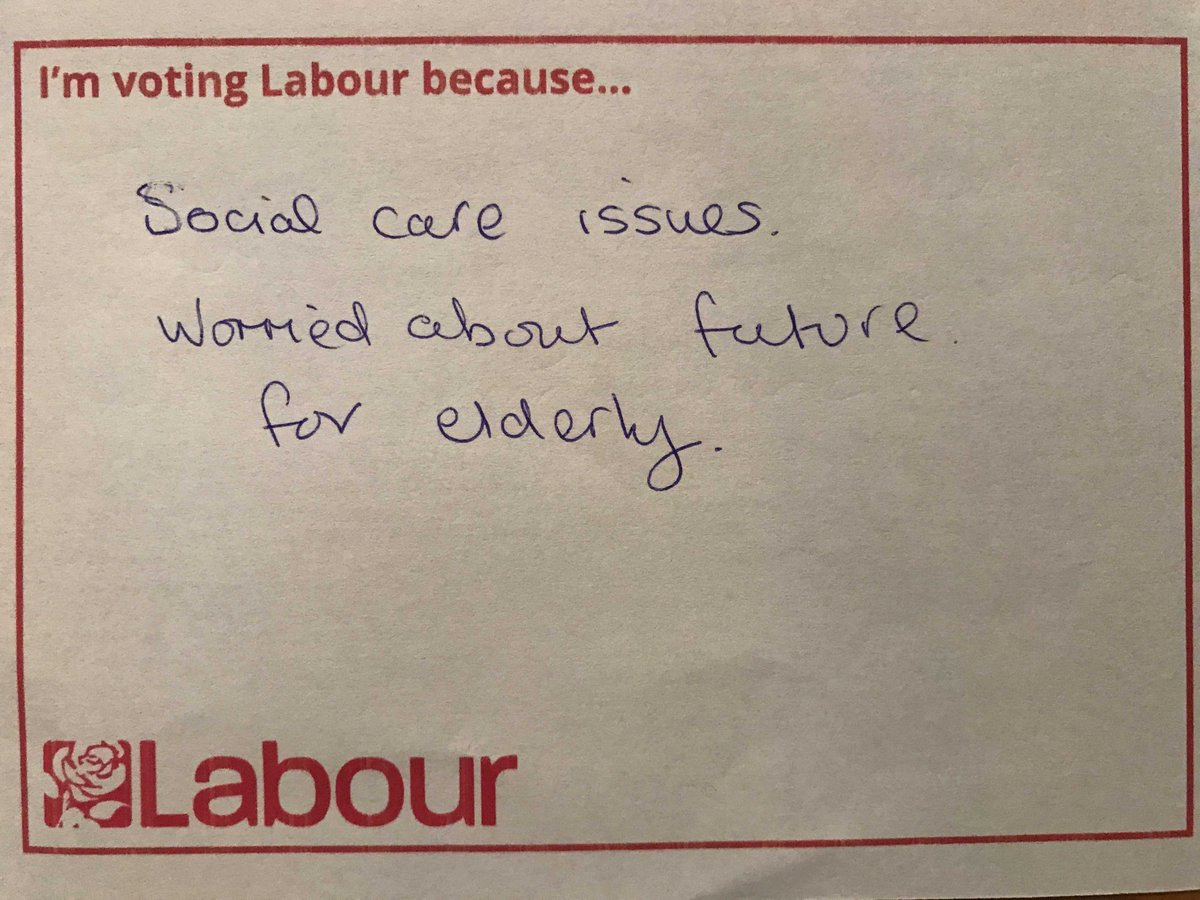 I'm voting Labour because...
Social care issues.
Worried about future.
for elderly.
Labour